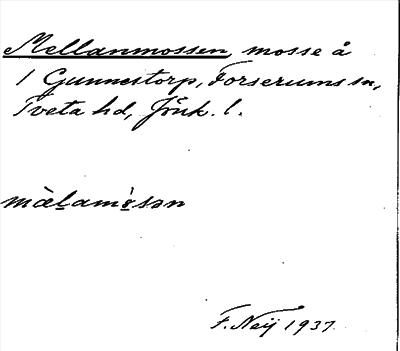 Mellanmossen, mosse å
1 Gunnestorp, Forserums sn,
Tveta hd, Jönk. l.
F. Neij 1937.